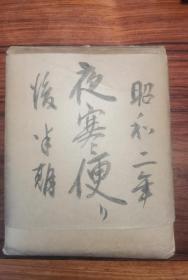 昭和二年
夜寒便り
後半期